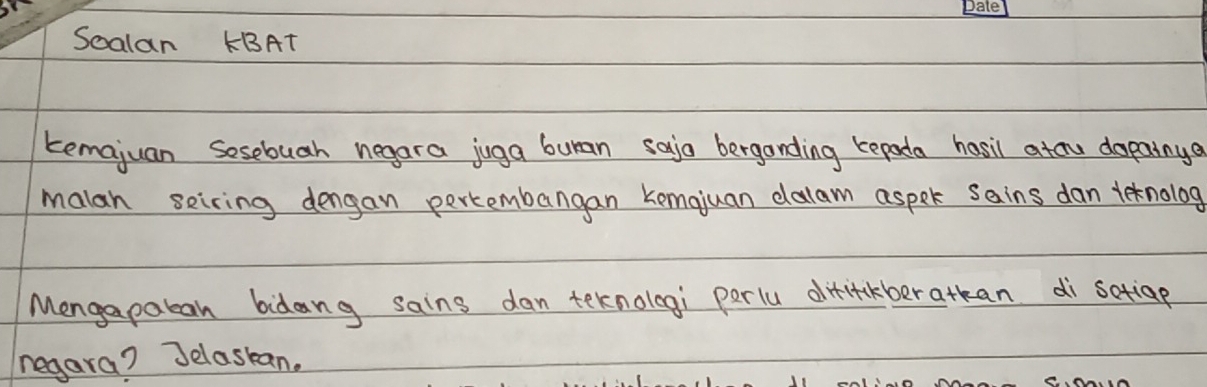 Date
Soalan KBAT
kemajuan sesebuah negara juga bukan saja berganding kepada hasil atau dapatnya
malah seiring dengan perkembangan kemajuan dalam aspek sains dan teknolog
Mengapakah bidang sains dan teknologi perlu dititikberatkan di setiap
negara? Jelaskan.